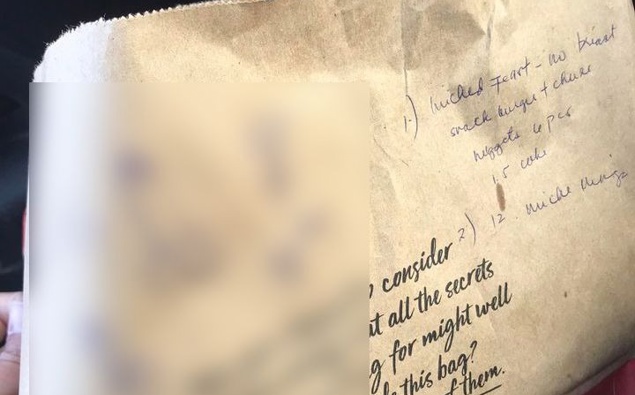 1) wicked Feast - no breast
snack burger + cheese
nuggets 6 pcs
1.5 coke
2) 12. wicke wings
consider
all the secrets
for might well
this bag?
them.